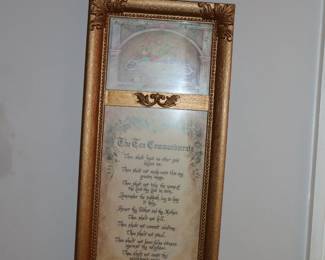 The Ten Commandments
Thou shalt have no other gods
before me.
Thou shalt not make unto thee any
graven image.
Thou shalt not take the name of
the Lord thy God in vain.
Remember the sabbath day to keep
it holy.
Honor thy Father and thy Mother.
Thou shalt not kill.
Thou shalt not commit adultery.
Thou shalt not steal.
Thou shalt not bear false witness
against thy neighbour.
Thou shalt not covet thy